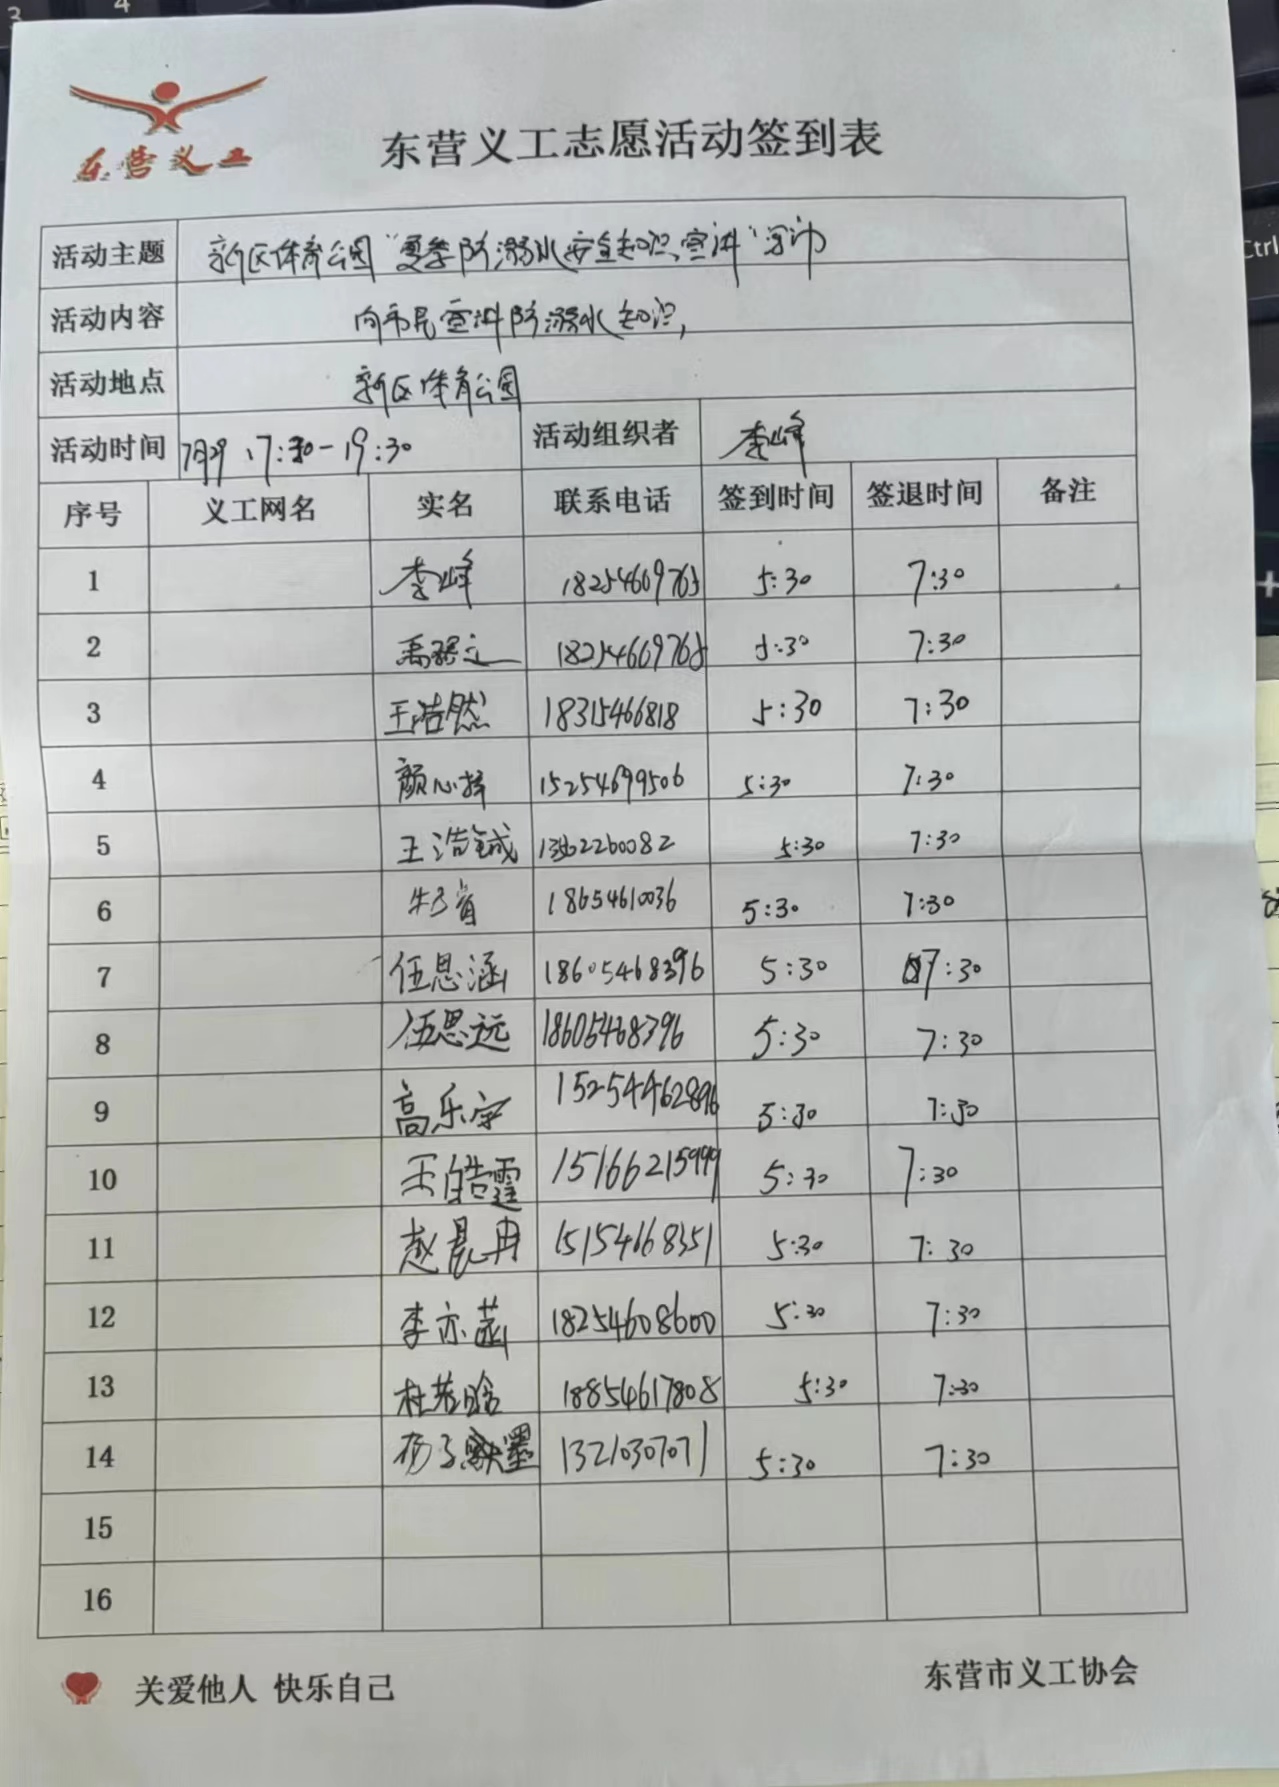 3 4
东营义工
东营义工志愿活动签到表
活动主题 新区体育公园“夏季防溺水安全知识宣讲”活动
活动内容 向市民宣讲防溺水知识,
活动地点 新区体育公园
活动时间 7月29 17:30-19:30 活动组织者 李峰
序号 义工网名 实名 联系电话 签到时间 签退时间 备注
1 李峰 18254669765 5:30 7:30
2 18254669765 5:30 7:30
3 王浩然 18315466818 5:30 7:30
4 颜心 15254699506 5:30 7:30
5 王浩铖 13562260082 5:30 7:30
6 18654610036 5:30 7:30
7 伍思涵 18605468396 5:30 7:30
8 伍思远 18605468396 5:30 7:30
9 高乐宇 15254462896 5:30 7:30
10 王皓霆 15166215999 5:30 7:30
11 赵晨冉 15154668351 5:30 7:30
12 李亦菡 18254608600 5:30 7:30
13 杜若晗 18854617808 5:30 7:30
14 杨子墨 13210307071 5:30 7:30
15
16
关爱他人 快乐自己
东营市义工协会
Ctrl
+